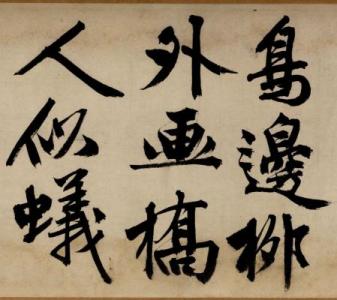 鳧邊柳
外画橋
人似蟻